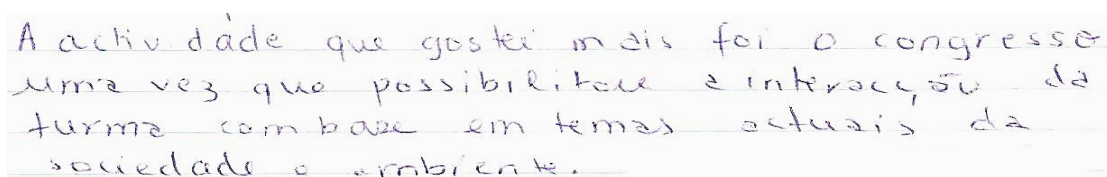 A actividade que gostei mais foi o congresso
uma vez que possibilitou a interacção da
turma com base em temas actuais da
sociedade e ambiente.